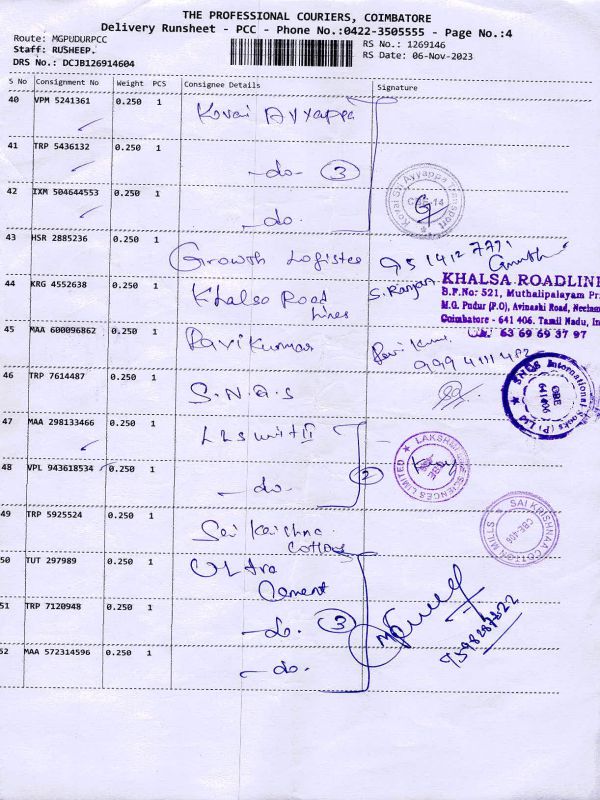 THE PROFESSIONAL COURIERS, COIMBATORE
Delivery Runsheet - PCC - Phone No.:0422-3505555 - Page No.:4
Route: MGPUDURPCC
RS No.: 1269146
Staff: RUSHEEP.
RS Date: 06-Nov-2023
DRS No.: DCJB126914604
S No Consignment No Weight PCS Consignee Details Signature
40 VPM 5241361 0.250 1 Kovai Ayyappa
41 TRP 5436132 0.250 1 -do- 3
42 IXM 504644553 0.250 1 -do-
Kovai Sri Ayyappa Transport
CBE-14
43 HSR 2885236 0.250 1 Growth Logistee
44 KRG 4552638 0.250 1 Khalsa Road Lines S. Ranjan
KHALSA ROADLINE
B.F.No: 521, Muthalipalayam Pr
M.G. Pudur (P.O), Avinashi Road, Neelam
Coimbatore - 641 406. Tamil Nadu, In
63 69 69 37 97
45 MAA 600096862 0.250 1 Ravikumar
46 TRP 7614487 0.250 1 S.N.Q.S
SNQS International Socks (P) Ltd
CBE
641406
47 MAA 298133466 0.250 1 LLS unit II
48 VPL 943618534 0.250 1 -do- 2
LAKSHMI LIFE SCIENCES LIMITED
49 TRP 5925524 0.250 1 Sai Krishna Cottons
SAI KRISHNA COTTON MILLS
CBE-406
50 TUT 297989 0.250 1 Ultra Cement
51 TRP 7120948 0.250 1 -do- 3
52 MAA 572314596 0.250 1 -do-